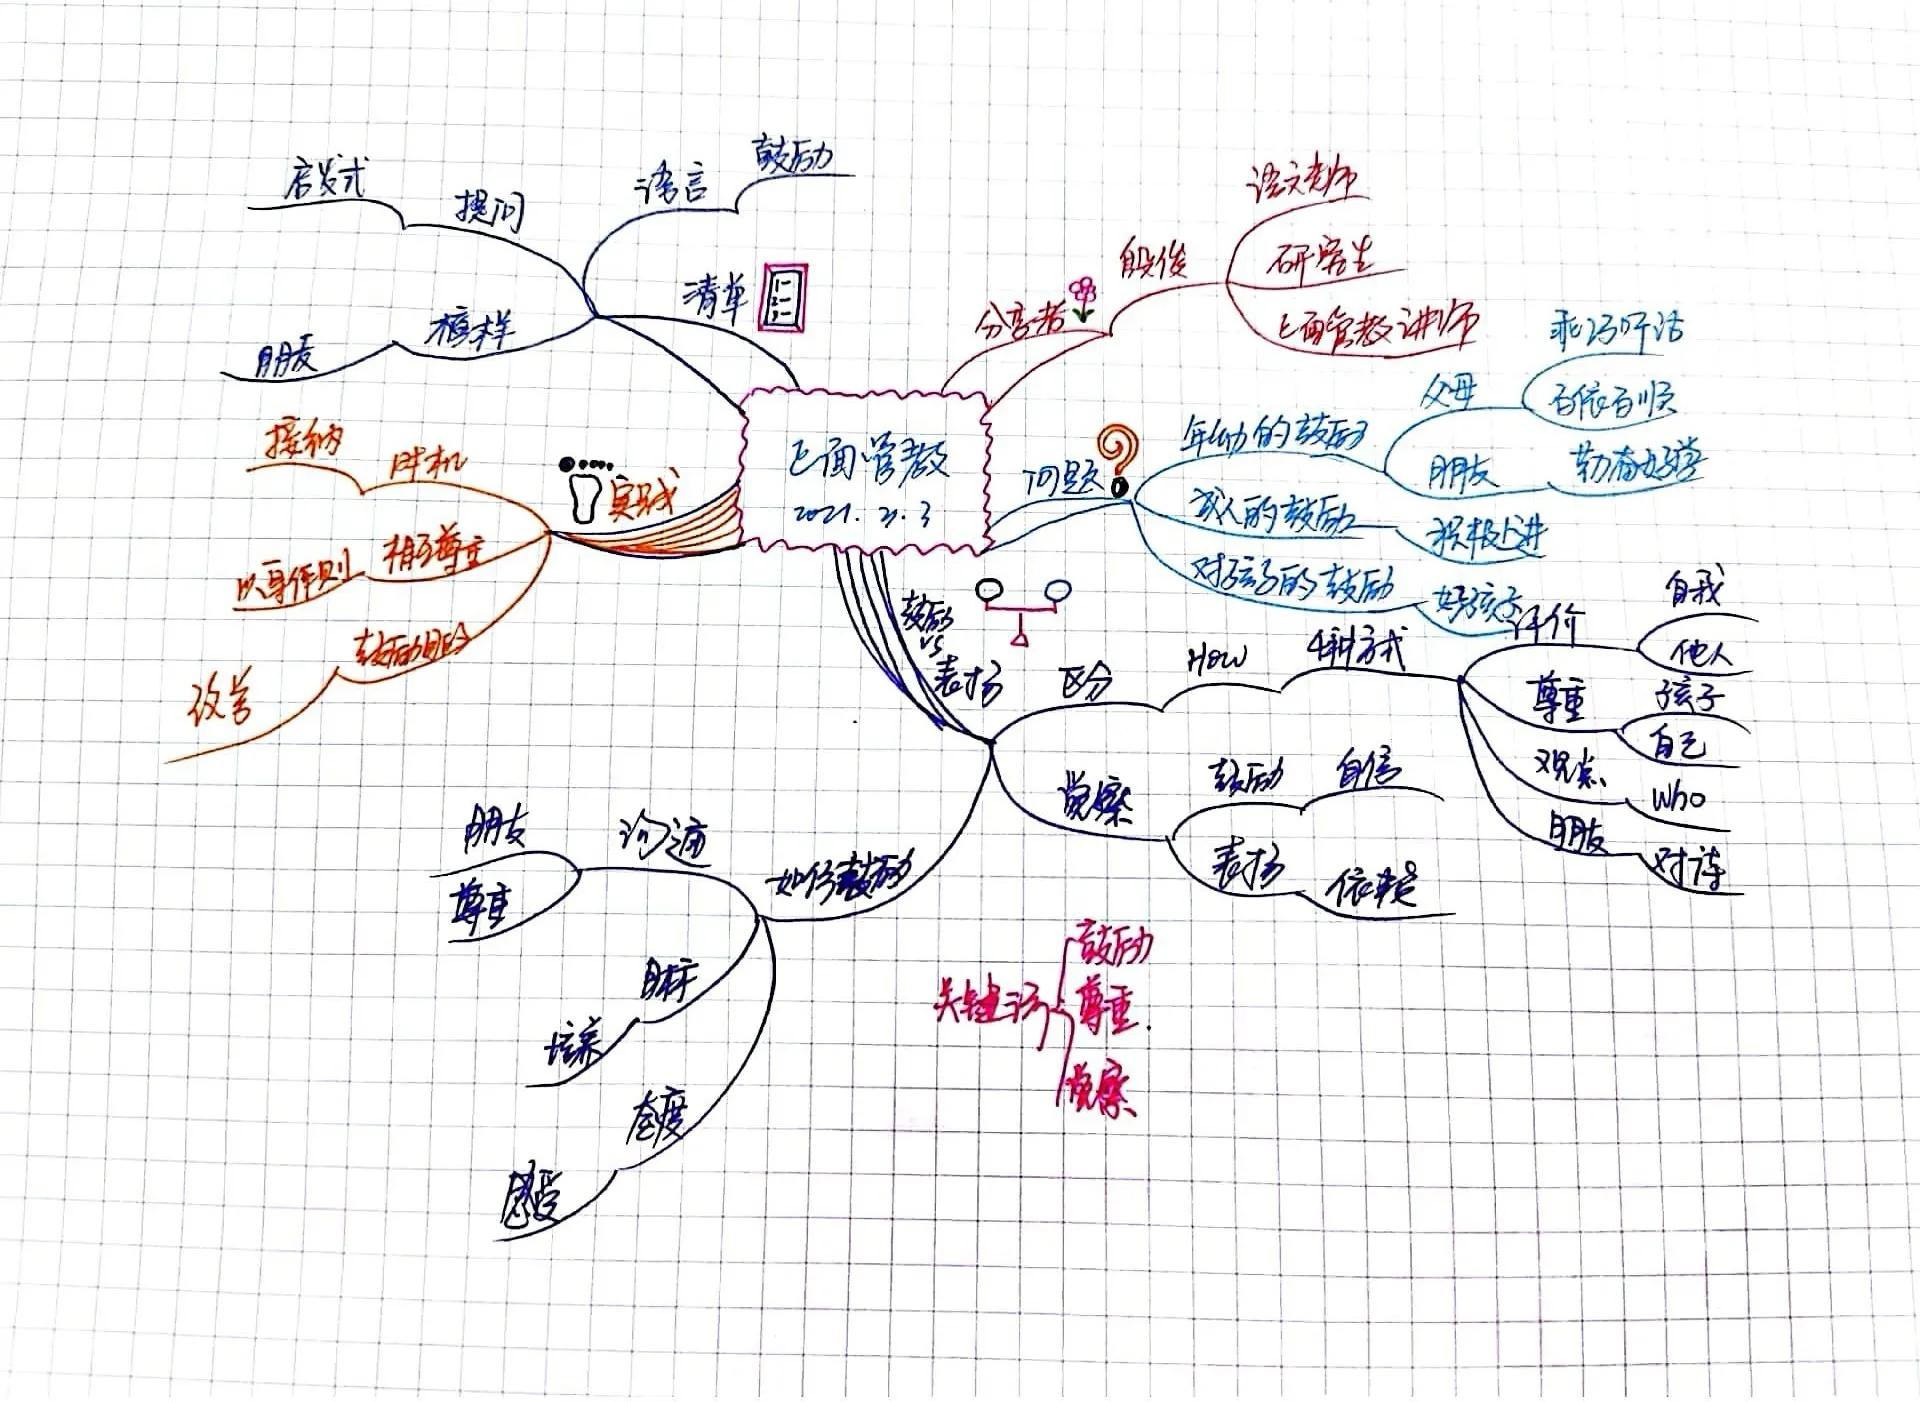 正面管教
2021. 2. 3
分享者
段俊
语文老师
研究生
正面管教讲师
问题
年幼的鼓励
父母
乖巧听话
百依百顺
朋友
勤奋好学
成人的鼓励
积极上进
对孩子的鼓励
好孩子
鼓励
VS
表扬
区分
How
4种方式
评价
自我
他人
尊重
孩子
自己
观点
Who
朋友
对待
觉察
鼓励
自信
表扬
依赖
如何鼓励
沟通
朋友
尊重
目标
培养
态度
感受
关键词
鼓励
尊重.
觉察
实践
时机
接纳
相互尊重
以身作则
鼓励
改善
清单
1
2
3
语言
鼓励
提问
启发式
榜样
朋友